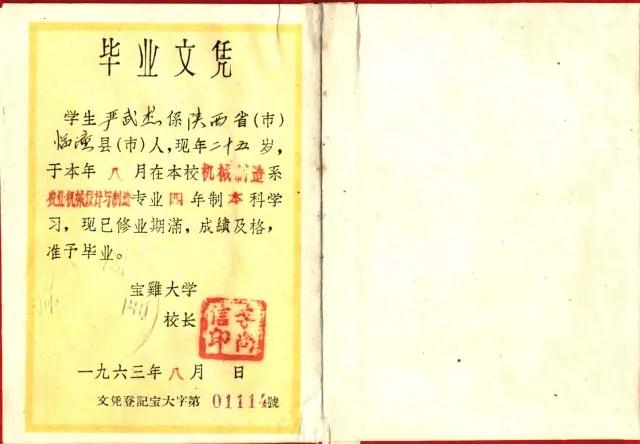 毕业文凭
学生严武杰係陕西省(市)
临潼县(市)人,现年二十五岁,
于本年八月在本校机械制造系
农业机械设计与制造专业四年制本科学
习,现已修业期滿,成績及格,
准予毕业。
宝雞大学
校长
一九六三年八月 日
文凭登記宝大字第01114號